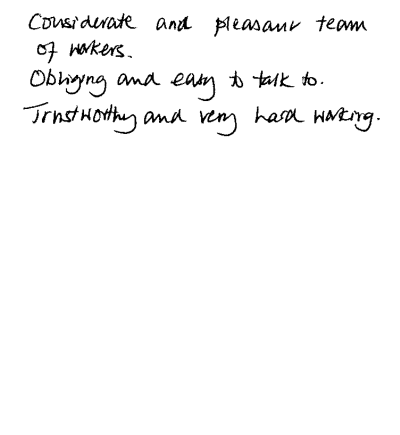 Considerate and pleasant team
of workers.
Obliging and easy to talk to.
Trustworthy and very hard working.